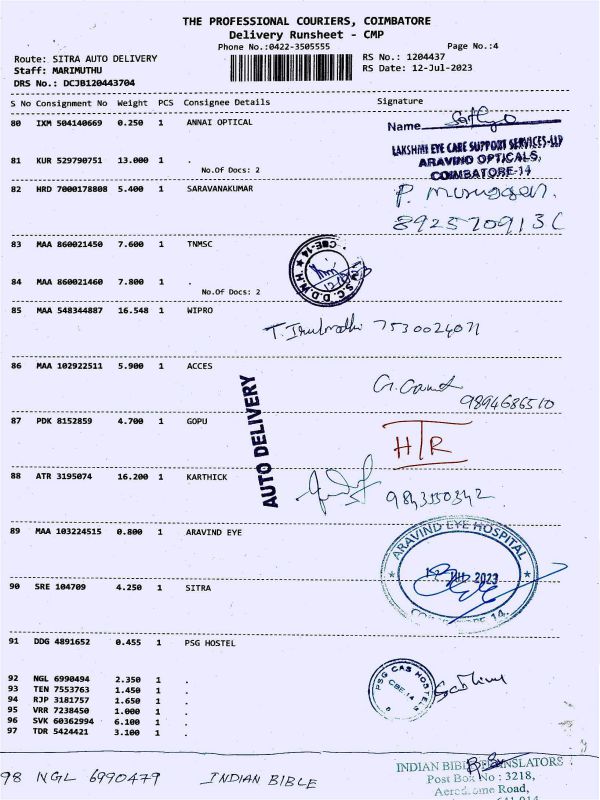 THE PROFESSIONAL COURIERS, COIMBATORE
Delivery Runsheet - CMP
Phone No.:0422-3505555 Page No.:4
Route: SITRA AUTO DELIVERY RS No.: 1204437
Staff: MARIMUTHU RS Date: 12-Jul-2023
DRS No.: DCJB120443704
S No Consignment No Weight PCS Consignee Details Signature
80 IXM 504140669 0.250 1 ANNAI OPTICAL
Name
LAKSHMI EYE CARE SUPPORT SERVICES-LLP
ARAVIND OPTICALS,
COIMBATORE-14
81 KUR 529790751 13.000 1 .
No.Of Docs: 2
82 HRD 7000178808 5.400 1 SARAVANAKUMAR
P. Murugesan.
83 MAA 860021450 7.600 1 TNMSC
CBE-14
84 MAA 860021460 7.800 1 .
No.Of Docs: 2
85 MAA 548344887 16.548 1 WIPRO
7530024071
86 MAA 102922511 5.900 1 ACCES
9894686510
AUTO DELIVERY
87 PDK 8152859 4.700 1 GOPU
HTR
88 ATR 3195074 16.200 1 KARTHICK
9843550342
89 MAA 103224515 0.800 1 ARAVIND EYE
ARAVIND EYE HOSPITAL
2023
COIMBATORE-14.
90 SRE 104709 4.250 1 SITRA
91 DDG 4891652 0.455 1 PSG HOSTEL
PSG CAS HOSTELS
CBE-14
92 NGL 6990494 2.350 1 .
93 TEN 7553763 1.450 1 .
94 RJP 3181757 1.650 1 .
95 VRR 7238450 1.000 1 .
96 SVK 60362994 6.100 1 .
97 TDR 5424421 3.100 1 .
98 NGL 6990479 INDIAN BIBLE
INDIAN BIBLE TRANSLATORS
Post Box No : 3218,
Aerodrome Road,